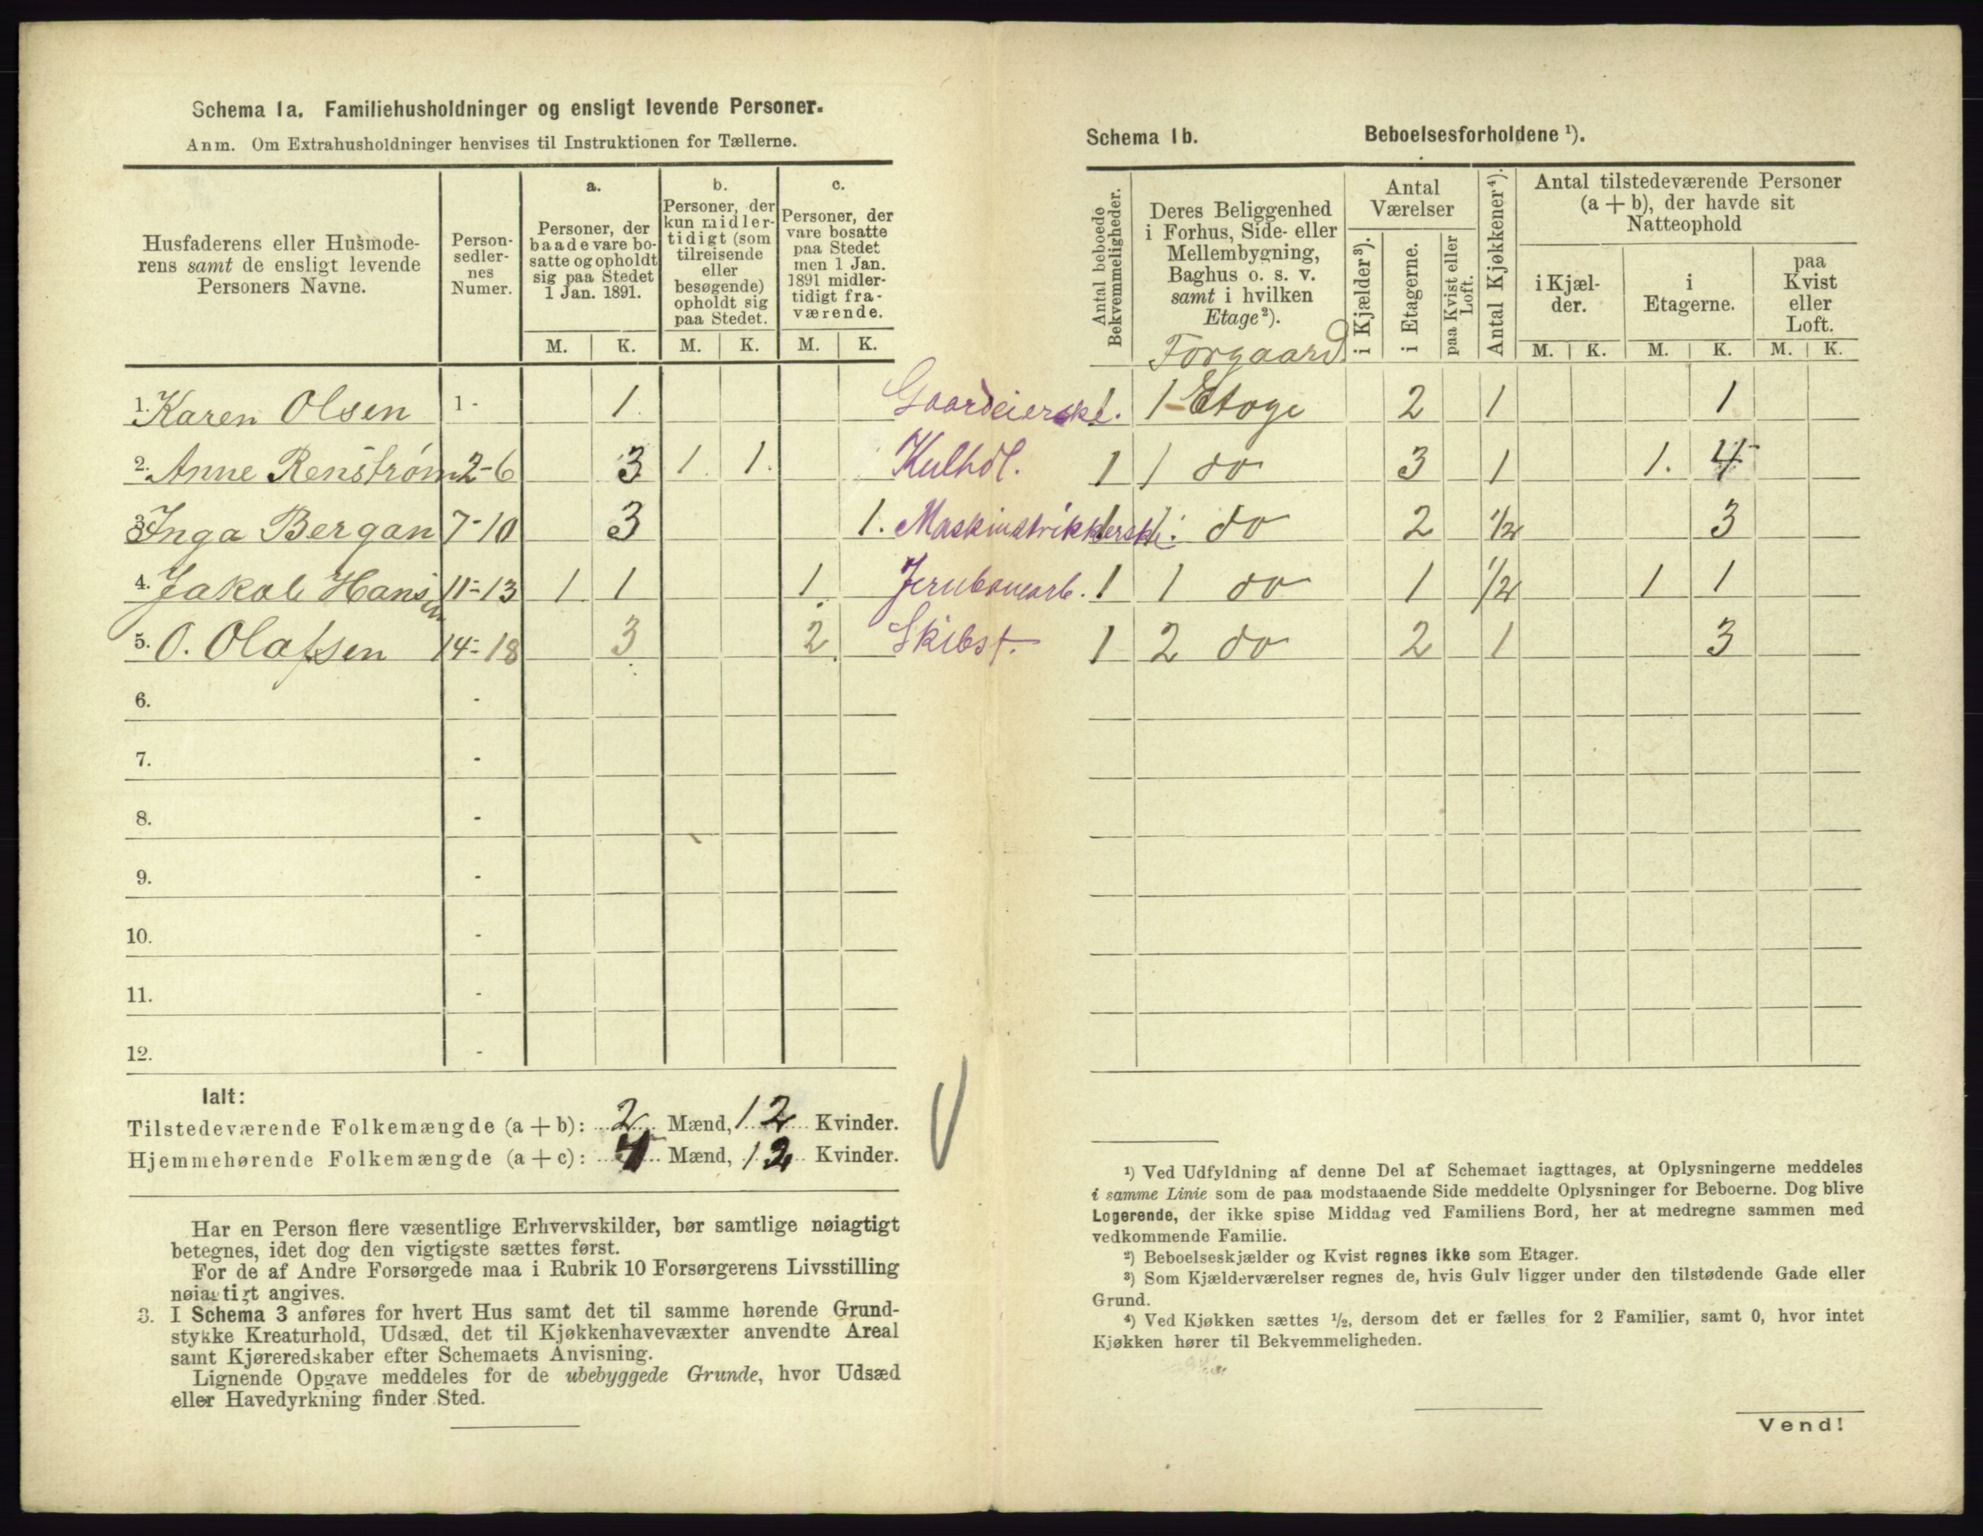 Schema 1a. Familiehusholdninger og ensligt levende Personer.
Anm. Om Extrahusholdninger henvises til Instruktionen for Tællerne.
Husfaderens eller Husmode-
rens samt de ensligt levende
Personers Navne.
Person-
sedler-
nes
Numer.
a.
Personer, der
baade vare bo-
satte og opholdt
sig paa Stedet
1 Jan. 1891.
b.
Personer, der
kun midler-
tidigt (som
tilreisende
eller
besøgende)
opholdt sig
paa Stedet.
c.
Personer, der
vare bosatte
paa Stedet
men 1 Jan.
1891 midler-
tidigt fra-
værende.
M. K. M. K. M. K.
1. Karen Olsen 1 - 1. Gaardeierske.
2. Anne Renstrøm 2-6 3 1. 1. Kulhdl.
3. Inga Bergan 7-10 3 1. Maskinstrikkerske.
4. Jakob Hansen 11-13 1 1 1. Jernbanearb.
5. O. Olafsen 14-18 3 2. Skibst.
6. -
7. -
8. -
9. -
10. -
11. -
12. -
Ialt:
Tilstedeværende Folkemængde (a + b): 2 Mænd, 12 Kvinder.
Hjemmehørende Folkemængde (a + c): Mænd, 12 Kvinder.
Har en Person flere væsentlige Erhvervskilder, bør samtlige nøiagtigt
betegnes, idet dog den vigtigste sættes først.
For de af Andre Forsørgede maa i Rubrik 10 Forsørgerens Livsstilling
nøiagtigt angives.
3. I Schema 3 anføres for hvert Hus samt det til samme hørende Grund-
stykke Kreaturhold, Udsæd, det til Kjøkkenhavevæxter anvendte Areal
samt Kjøreredskaber efter Schemaets Anvisning.
Lignende Opgave meddeles for de ubebyggede Grunde, hvor Udsæd
eller Havedyrkning finder Sted.
Schema 1b. Beboelsesforholdene ¹).
Antal beboede
Bekvemmeligheder.
Deres Beliggenhed
i Forhus, Side- eller
Mellembygning,
Baghus o. s. v.
samt i hvilken
Etage²).
Forgaard
Antal
Værelser
i Kjælder³).
i Etagerne.
paa Kvist eller
Loft.
Antal Kjøkkener⁴).
Antal tilstedeværende Personer
(a + b), der havde sit
Natteophold
i Kjæl-
der.
i
Etagerne.
paa
Kvist
eller
Loft.
M. K. M. K. M. K.
1. 1 Etage 2 1 1
1 1 do 3 1 1. 4
1 1 do 2 1/2 3
1 1 do 1 1/2 1 1
1 2 do 2 1 3
¹) Ved Udfyldning af denne Del af Schemaet iagttages, at Oplysningerne meddeles
i samme Linie som de paa modstaaende Side meddelte Oplysninger for Beboerne. Dog blive
Logerende, der ikke spise Middag ved Familiens Bord, her at medregne sammen med
vedkommende Familie.
²) Beboelseskjælder og Kvist regnes ikke som Etager.
³) Som Kjælderværelser regnes de, hvis Gulv ligger under den tilstødende Gade eller
Grund.
⁴) Ved Kjøkken sættes ½, dersom det er fælles for 2 Familier, samt 0, hvor intet
Kjøkken hører til Bekvemmeligheden.
Vend!